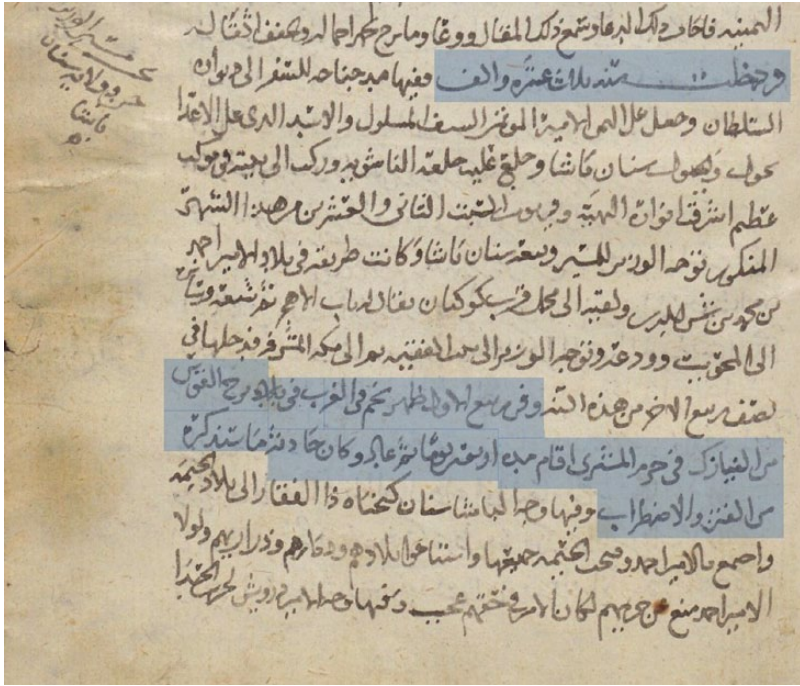 اليمنيه فاجاب ذلك الدعا وسمع ذلك المقال ووعا وما برح ظهر احماله وتخفف اثقاله
ودخلت سنه ثلاث عشره والف وفيها مد جناحه للسفر الى ديوان
السلطان وجعل على اليمن الامير الموتمن السيف المسلول والاسد الذى على الاعدا
يجول ويصول سنان باشا وخلع عليه خلعة الباشويه وركب الى بيته فى موكب
عظيم اشرقت انواره البهيه وفى يوم السبت الثانى والعشرين من هذا الشهر
المذكور توجه الوزير للمسير وبعده سنان باشا وكانت طريقه فى بلاد الامير احمد
بن محمد بن شمس الدين ولقيه الى محل قرب كوكبان يقال له باب الاهجر ثم شيعه وسار
الى المحويت وودعه وتوجه الوزير الى بيت الفقيه ثم الى مكه المشرفه فدخلها فى
نصف ربيع الاخر من هذه السنه وفى ربيع الاول ظهر نجم فى الغرب فى برج القوس
من النيازك فى جرم المشترى اقام مده اربعين يوما ثم غاب وكان حادثه ما سنذكره
من الفتن والاضطراب وفيها وجه الباشا سنان كتخداه ذا الفقار الى بلاد الحيمه
واجتمع بالامير احمد وفتحت الحيمه جميعها واستباحوا بلادهم وديارهم وذراريهم ولولا
الامير احمد منع عن حريمهم لكان الامر فى حقهم عجيب وفيها وجه الامير درويش لحرب
مسير الوزير
حسن وولايه سنان
باشا